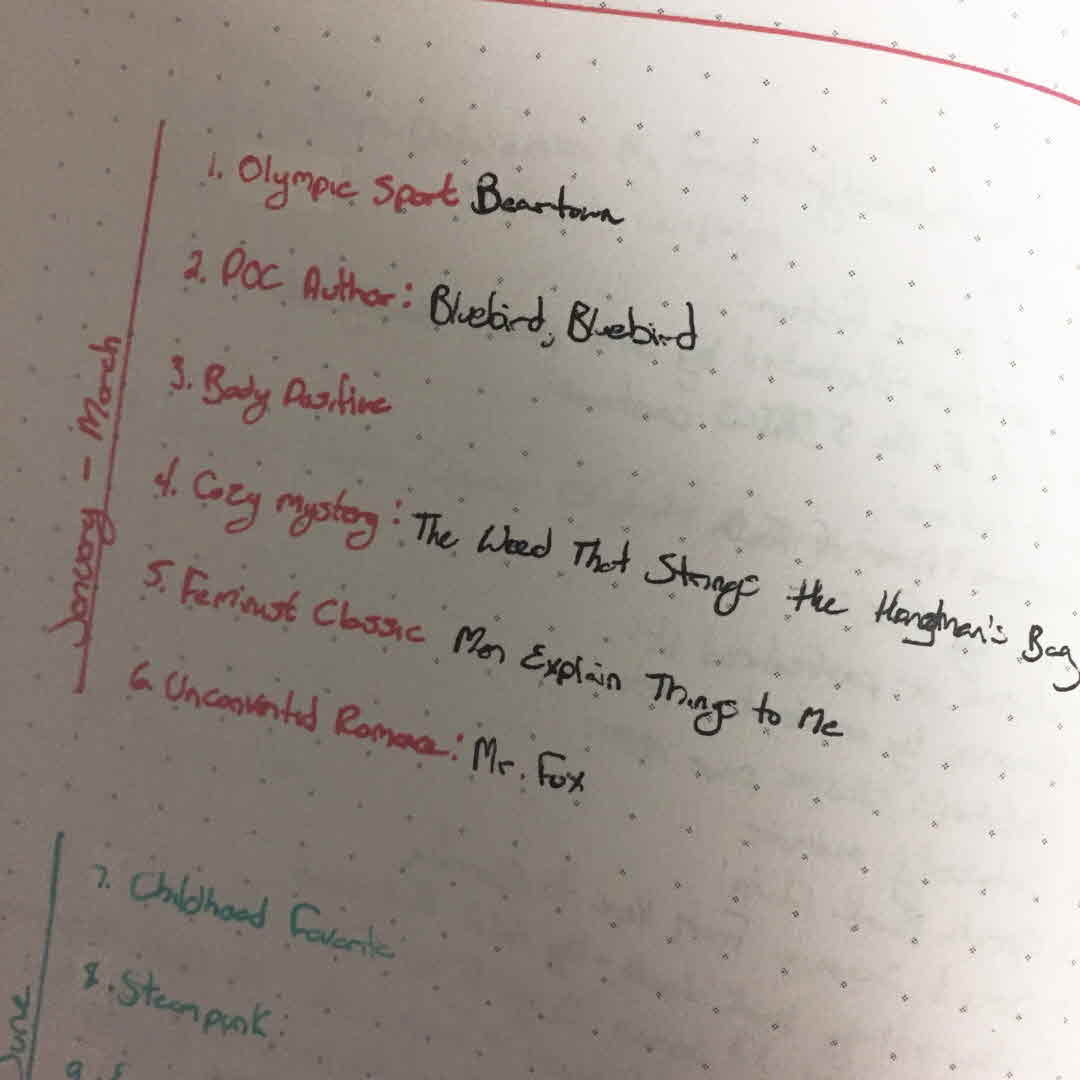 1. Olympic Sport Beartown
2. POC Author: Bluebird, Bluebird
3. Body Positive
4. Cozy mystery: The Weed That Strings the Hangman's Bag
5. Feminist Classic Men Explain Things to Me
6. Unconvented Romance: Mr. Fox
January - March
7. Childhood Favorite
8. Steampunk:
9.
June